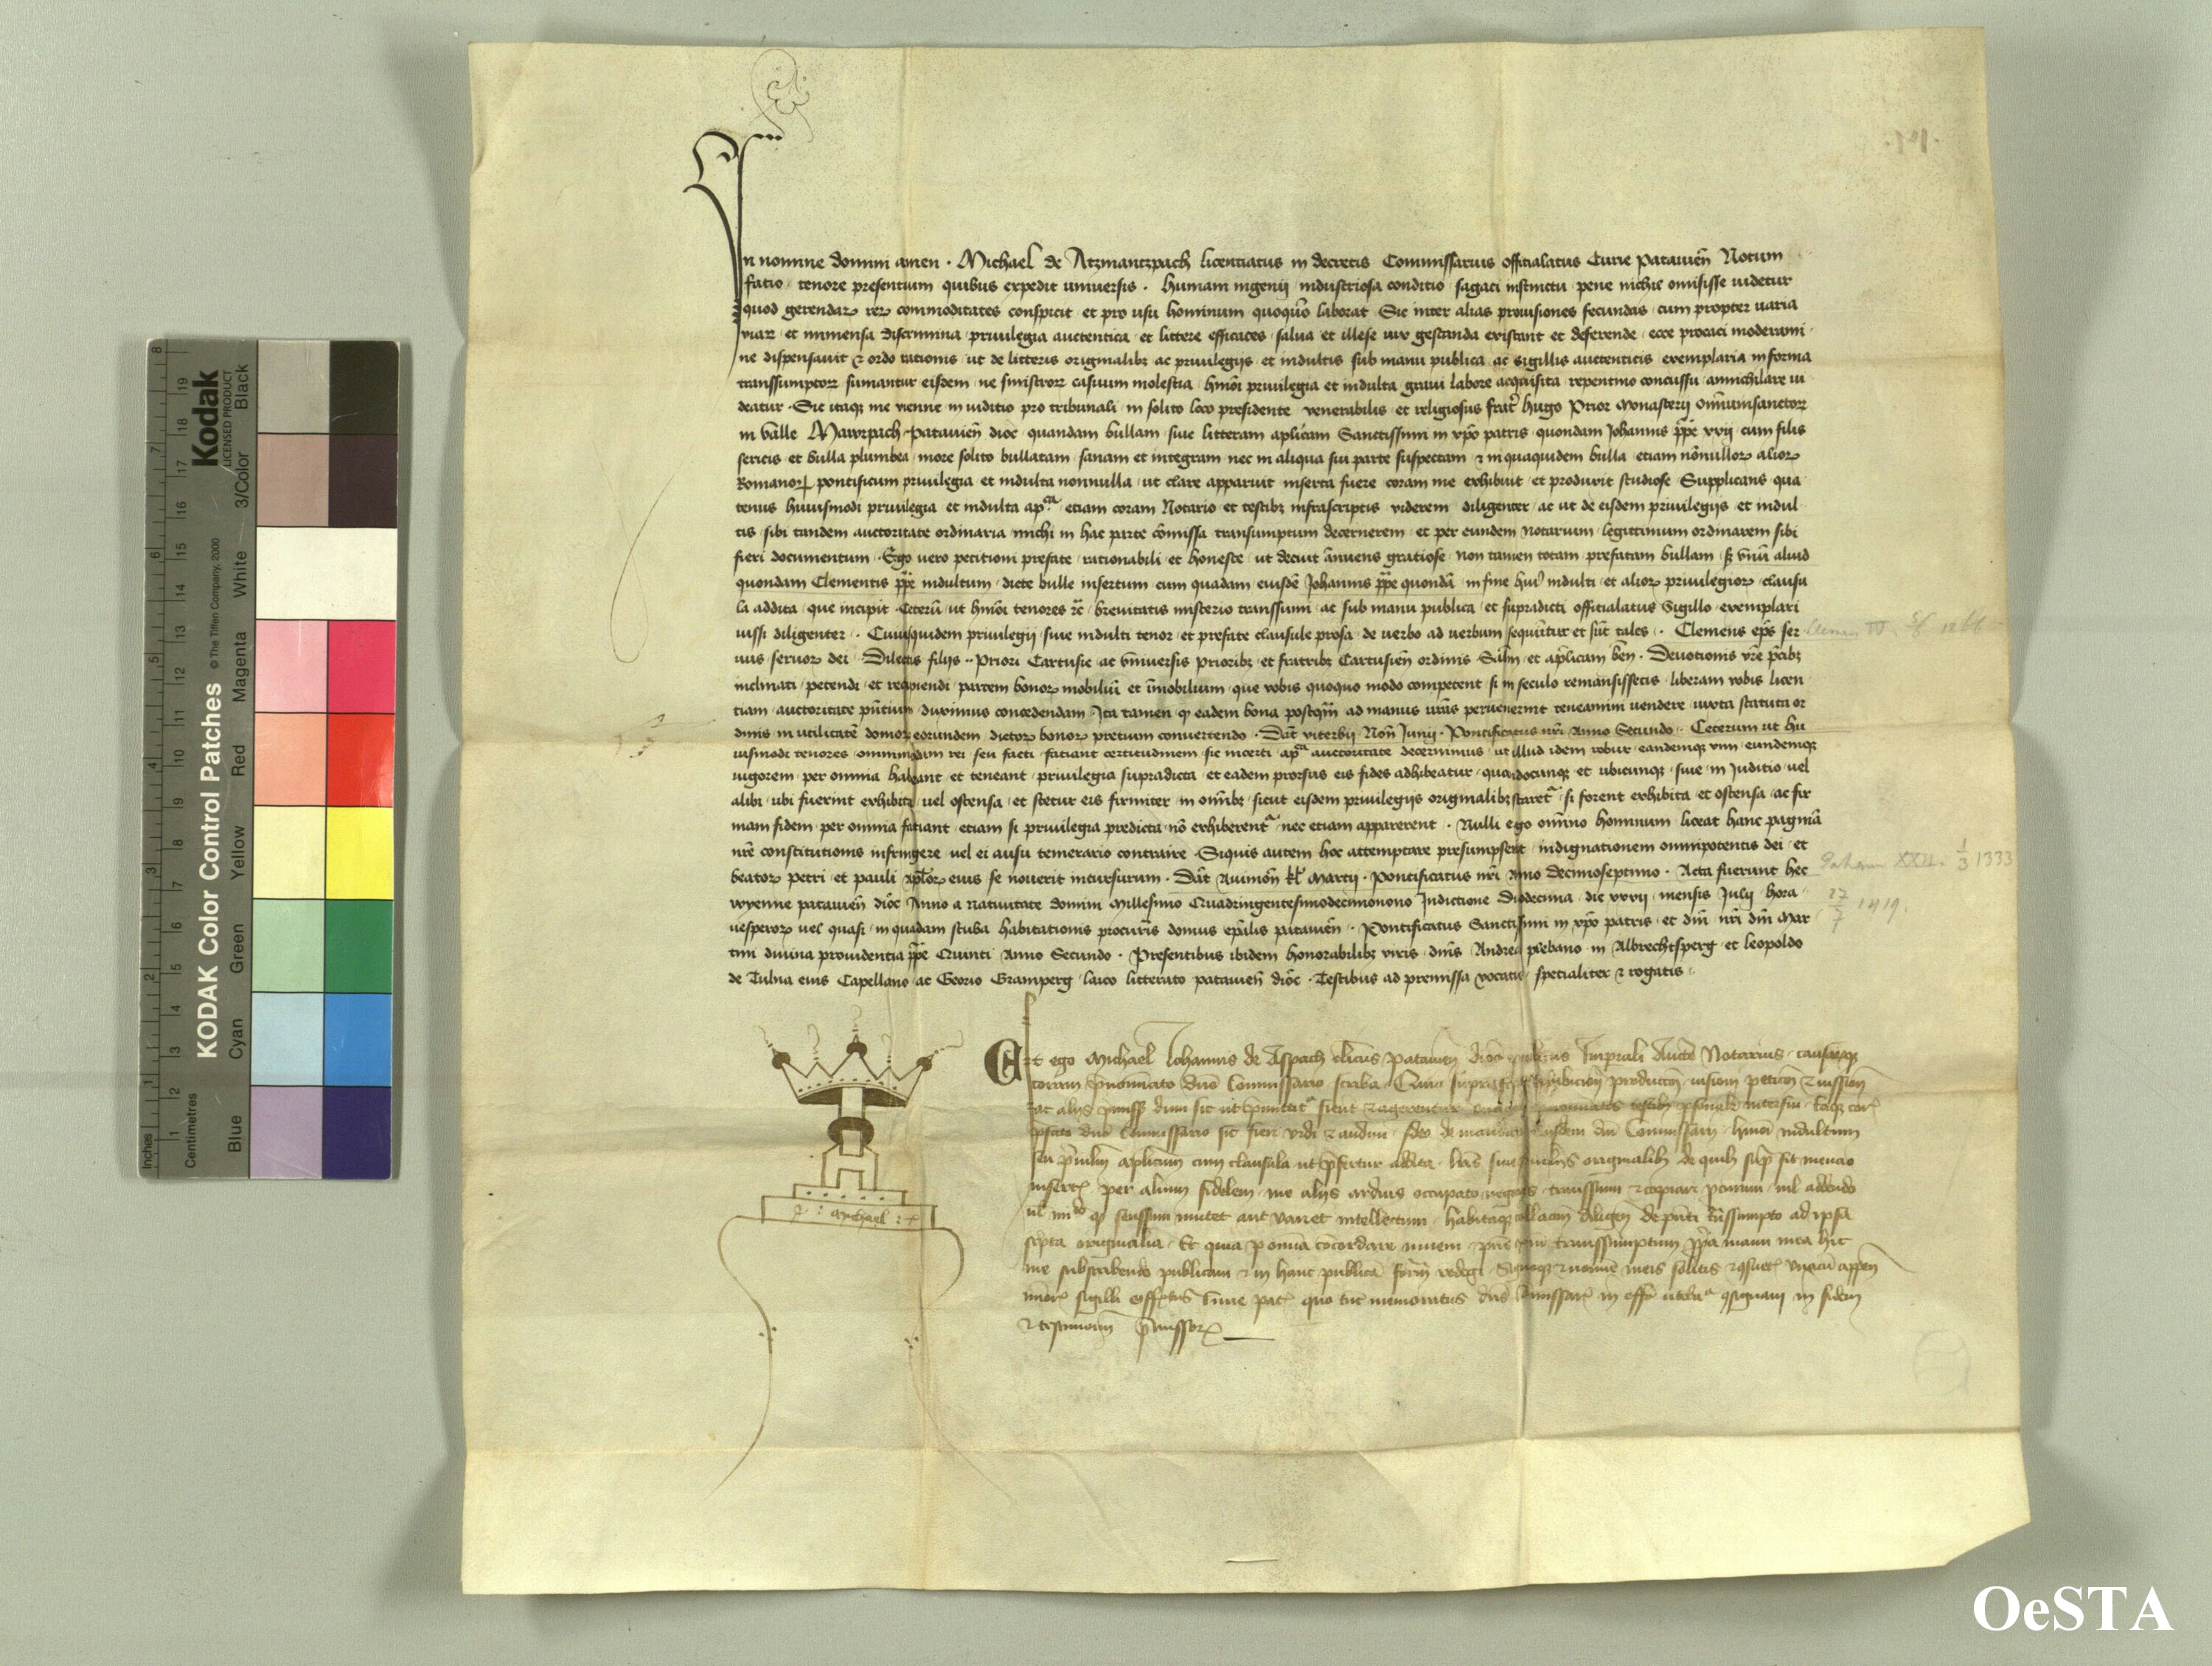 In nomine domini amen · Michael de Atzmantzpach licentiatus in decretis Commissarius officialatus Curie patauień Notum
facio tenore presentium quibus expedit uniuersis · humani ingenij industriosa conditio sagaci instinctu pene nichil omisisse uidetur
quod gerendaꝝ reꝝ commoditates conspicit et pro usu hominum quoquo laborat Sic inter alias prouisiones fecundas cum propter uaria
uiaꝝ et immensa discrimina priuilegia auctentica et littere efficaces salua et illese uix gestanda existant et deferende ecce procaci moderami
ne dispensauit ⁊ ordo rationis ut de litteris originalibꝫ ac priuilegijs et indultis sub manu publica ac sigillis auctenticis exemplaria in forma
transsumptoꝝ sumantur eisdem ne sinistroꝝ casuum molestia hmōi priuilegia et indulta graui labore acquisita repentino concussu annichilare ui
deatur · Sic itaqꝫ me vienne in iuditio pro tribunali in solito loco presidente venerabilis et religiosus frater hugo Prior Monasterij omniumsanctoꝝ
in valle Mawrpach patauień dioc̄ quandam bullam siue litteram aplicam Sanctissimi in xp̄o patris quondam Johannis pp̄e xxij cum filis
sericis et bulla plumbea more solito bullatam sanam et integram nec in aliqua sui parte suspectam ⁊ in quaquidem bulla etiam nōnulloꝝ alioꝝ
Romanoꝝ pontificum priuilegia et indulta nonnulla ut clare apparuit inserta fuere coram me exhibuit et produxit studiose Supplicans qua
tenus huiusmodi priuilegia et indulta ap^ca etiam coram Notario et testibꝫ infrascriptis viderem diligenter ac ut de eisdem priuilegijs et indul
tis sibi tandem auctoritate ordinaria michi in hac parte cōmissa transumptum decernerem et per eundem notarium legittimum ordinarem sibi
fieri documentum · Ego vero petitioni prefate rationabili et honeste ut decuit annuens gratiose non tamen totam prefatam bullam sꝫ vnū aliud
quondam Clementis pp̄e indultum dicte bulle insertum cum quadam eiusdē Johannis pp̄e quondā in fine huiꝰ indulti et alioꝝ priuilegioꝝ clausu
la addita que incipit Ceterū ut hmōi tenores rc̄ breuitatis misterio transsumi ac sub manu publica et supradicti officialatus Sigillo exemplari
iussi diligenter · Cuiusquidem priuilegij siue indulti tenor et prefate clausule prosa de uerbo ad uerbum sequūtur et sūt tales · Clemens ep̄s ser
uus seruoꝝ dei Dilectis filijs ·· Priori Cartusie ac vniuersis prioribꝫ et fratribꝫ Cartusień ordinis Salm̄ et aplicam ben̄ · Deuotionis vr̄e p̄cibꝫ
inclinati petendi et recipiendi partem bonoꝝ mobiliū et īmobilium que vobis quoquo modo competent si in seculo remansissetis liberam vobis licen
tiam auctoritate pn̄tium duximus concedendam Ita tamen ꝙ eadem bona postqm̄ ad manus vr̄as peruenerint teneamini uendere iuxta statuta or
dinis in utilitatē domoꝝ eorundem dictoꝝ bonoꝝ pretium conuertendo · Dat̄ viterbij Non̄ Junij · Pontificatus nr̄i Anno Secundo · Ceterum ut hu
iusmodi tenores omnimodam rei seu facti faciant certitudinem sic inserti ap^ca auctoritate decernimus ut illud idem robur eandemqꝫ vim eundemqꝫ
uigorem per omnia habeant et teneant priuilegia supradicta et eadem prorsus eis fides adhibeatur quandocunqꝫ et ubicunqꝫ siue in Juditio uel
alibi ubi fuerint exhibita uel ostensa et stetur eis firmiter in omībꝫ sicut eisdem priuilegijs originalibꝫ staret^r si forent exhibita et ostensa ac fir
mam fidem per omnia faciant etiam si priuilegia predicta nō exhiberent^r nec etiam apparerent · Nulli ergo omīno hominum liceat hanc paginā
nr̄e constitutionis infringere uel ei ausu temerario contraire Siquis autem hoc attemptare presumpserit indignationem omnipotentis dei et
beatoꝝ petri et pauli apl̄oꝝ eius se nouerit incursurum · Dat̄ Auinoń kl̄ Martij · Pontificatus nr̄i Anno decimoseptimo · Acta fuerunt hec
wyenne patauień dioc̄ Anno a natiuitate domini Millesimo Quadringentesimodecimonono Indictione Duodecima die xxvij mensis Julij hora
uesperoꝝ uel quasi in quadam stuba habitationis procur̄is domus ep̄alis patauień · Pontificatus Sanctissimi in xp̄o patris et dn̄i nr̄i dn̄i Mar
tini diuina prouidentia pp̄e Quinti Anno Secundo · Presentibus ibidem honorabilibꝫ viris dn̄is Andrea plebano in Albrechtsperg et leopoldo
de Tulna eius Capellano ac Georio Gramperg laico litterato patauień dioc̄ · Testibus ad premissa vocatis specialiter ⁊ rogatis
Et ego Michael Johannis de Aspach cl̄icus patauień dioc̄ publicus Imp̄iali Auctē Notarius causarūqꝫ
coram p̄nominato dn̄o Commissario scriba
ac alijs p̄missis dum sic ut p̄mittit^r fierent ⁊ agerentur
p̄fato dn̄o Commissario sic fieri vidi ⁊ audiui Ideo de mandato eiusdem dn̄i Commissarij hmōi indultum
seu p̄uilm̄ aplicum cum clausula ut p̄fertur addita
per alium fidelem me alijs arduis occupato negotijs transsumi ⁊ copiari nil addendo
sensum mutet aut variet intellectum
sc̄pta originalia Et quia p omīa cōcordare inueni transsumptum manu mea hic
me subscribendo publicam ⁊ in hanc publicā formā redegi Signoqꝫ ⁊ nomine meis solitis ⁊ ꝯsuet̄ vnacū appen
sigilli Curie Pat̄ quo tūc memoratus dn̄s Commissar̄ ꝯsignaui in fidem
⁊ testimoniū p̄missoꝝ
: michael :
1333
27
7
1419
8
7
6
5
4
3
2
1
Inches
Centimetres
19
18
17
16
15
14
13
12
11
10
9
8
7
6
5
4
3
2
1
KODAK Color Control Patches
© The Tiffen Company, 2000
Kodak
LICENSED PRODUCT
Blue
Cyan
Green
Yellow
Red
Magenta
White
3/Color
Black
OeSTA